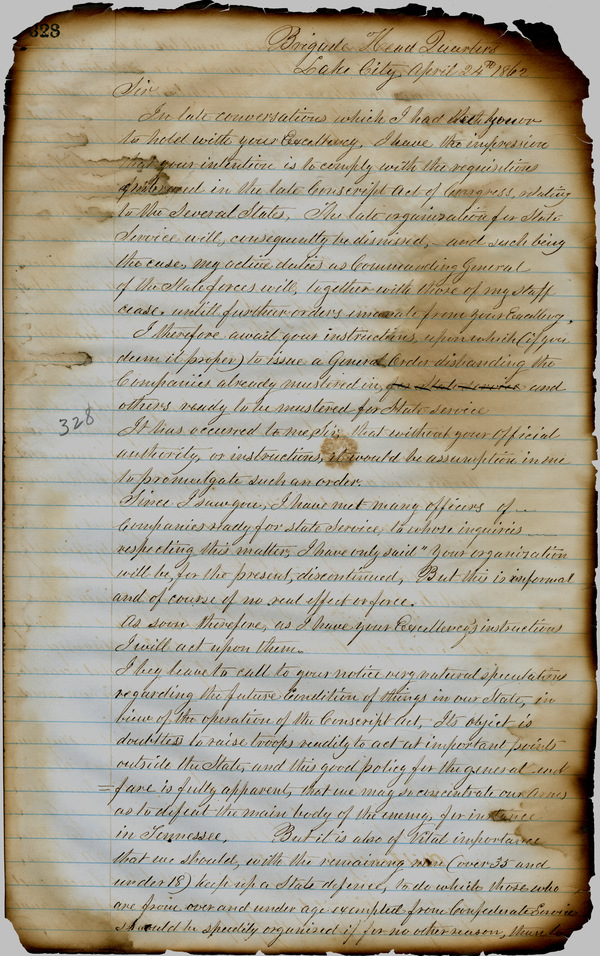 328
Brigade Head Quarters
Lake City, April 24th 1862
Sir
In late conversations which I had the honor
to hold with your Excellency, I have the impression
that your intention is to comply with the requisitions
in the late Conscript Act of Congress, relating
to the Several States, The late organization for State
Service will, consequently be dismissed, and such being
the case, my active duties as Commanding General
of the State forces will, together with those of my staff
cease, untill further orders emanate from your Excellency.
I therefore await your instructions, upon which (if you
deem it proper) to issue a General Order disbanding the
Companies already mustered in, for State Service and
others ready to be mustered for State service
328
It has occurred to me, Sir, that without your Official
authority, or instructions, it would be assumption in me
to promulgate such an order.
Since I saw you, I have met many officers of
Companies ready for State Service, to whose inquiries
respecting this matter, I have only said "Your organization
will be, for the present, discontinued, But this is informal
and of course of no real effect or force.
As soon therefore, as I have your Excellency's instructions
I will act upon them.
I beg leave to call to your notice very natural speculations
regarding the future Condition of things in our State, in
view of the operation of the Conscript Act, Its object is
doubtless to raise troops readily to act at important points
outside the State, and this good policy for the general wel
=fare is fully apparent, that we may so concentrate our Arms
as to defeat the main body of the enemy, for instance
in Tennessee. But it is also of Vital importance
that we should, with the remaining men (over 35 and
under 18) keep up a State defence, to do which those who
are from over and under age exempted from Confederate Service
should be speedily organised if for no other reason, than to